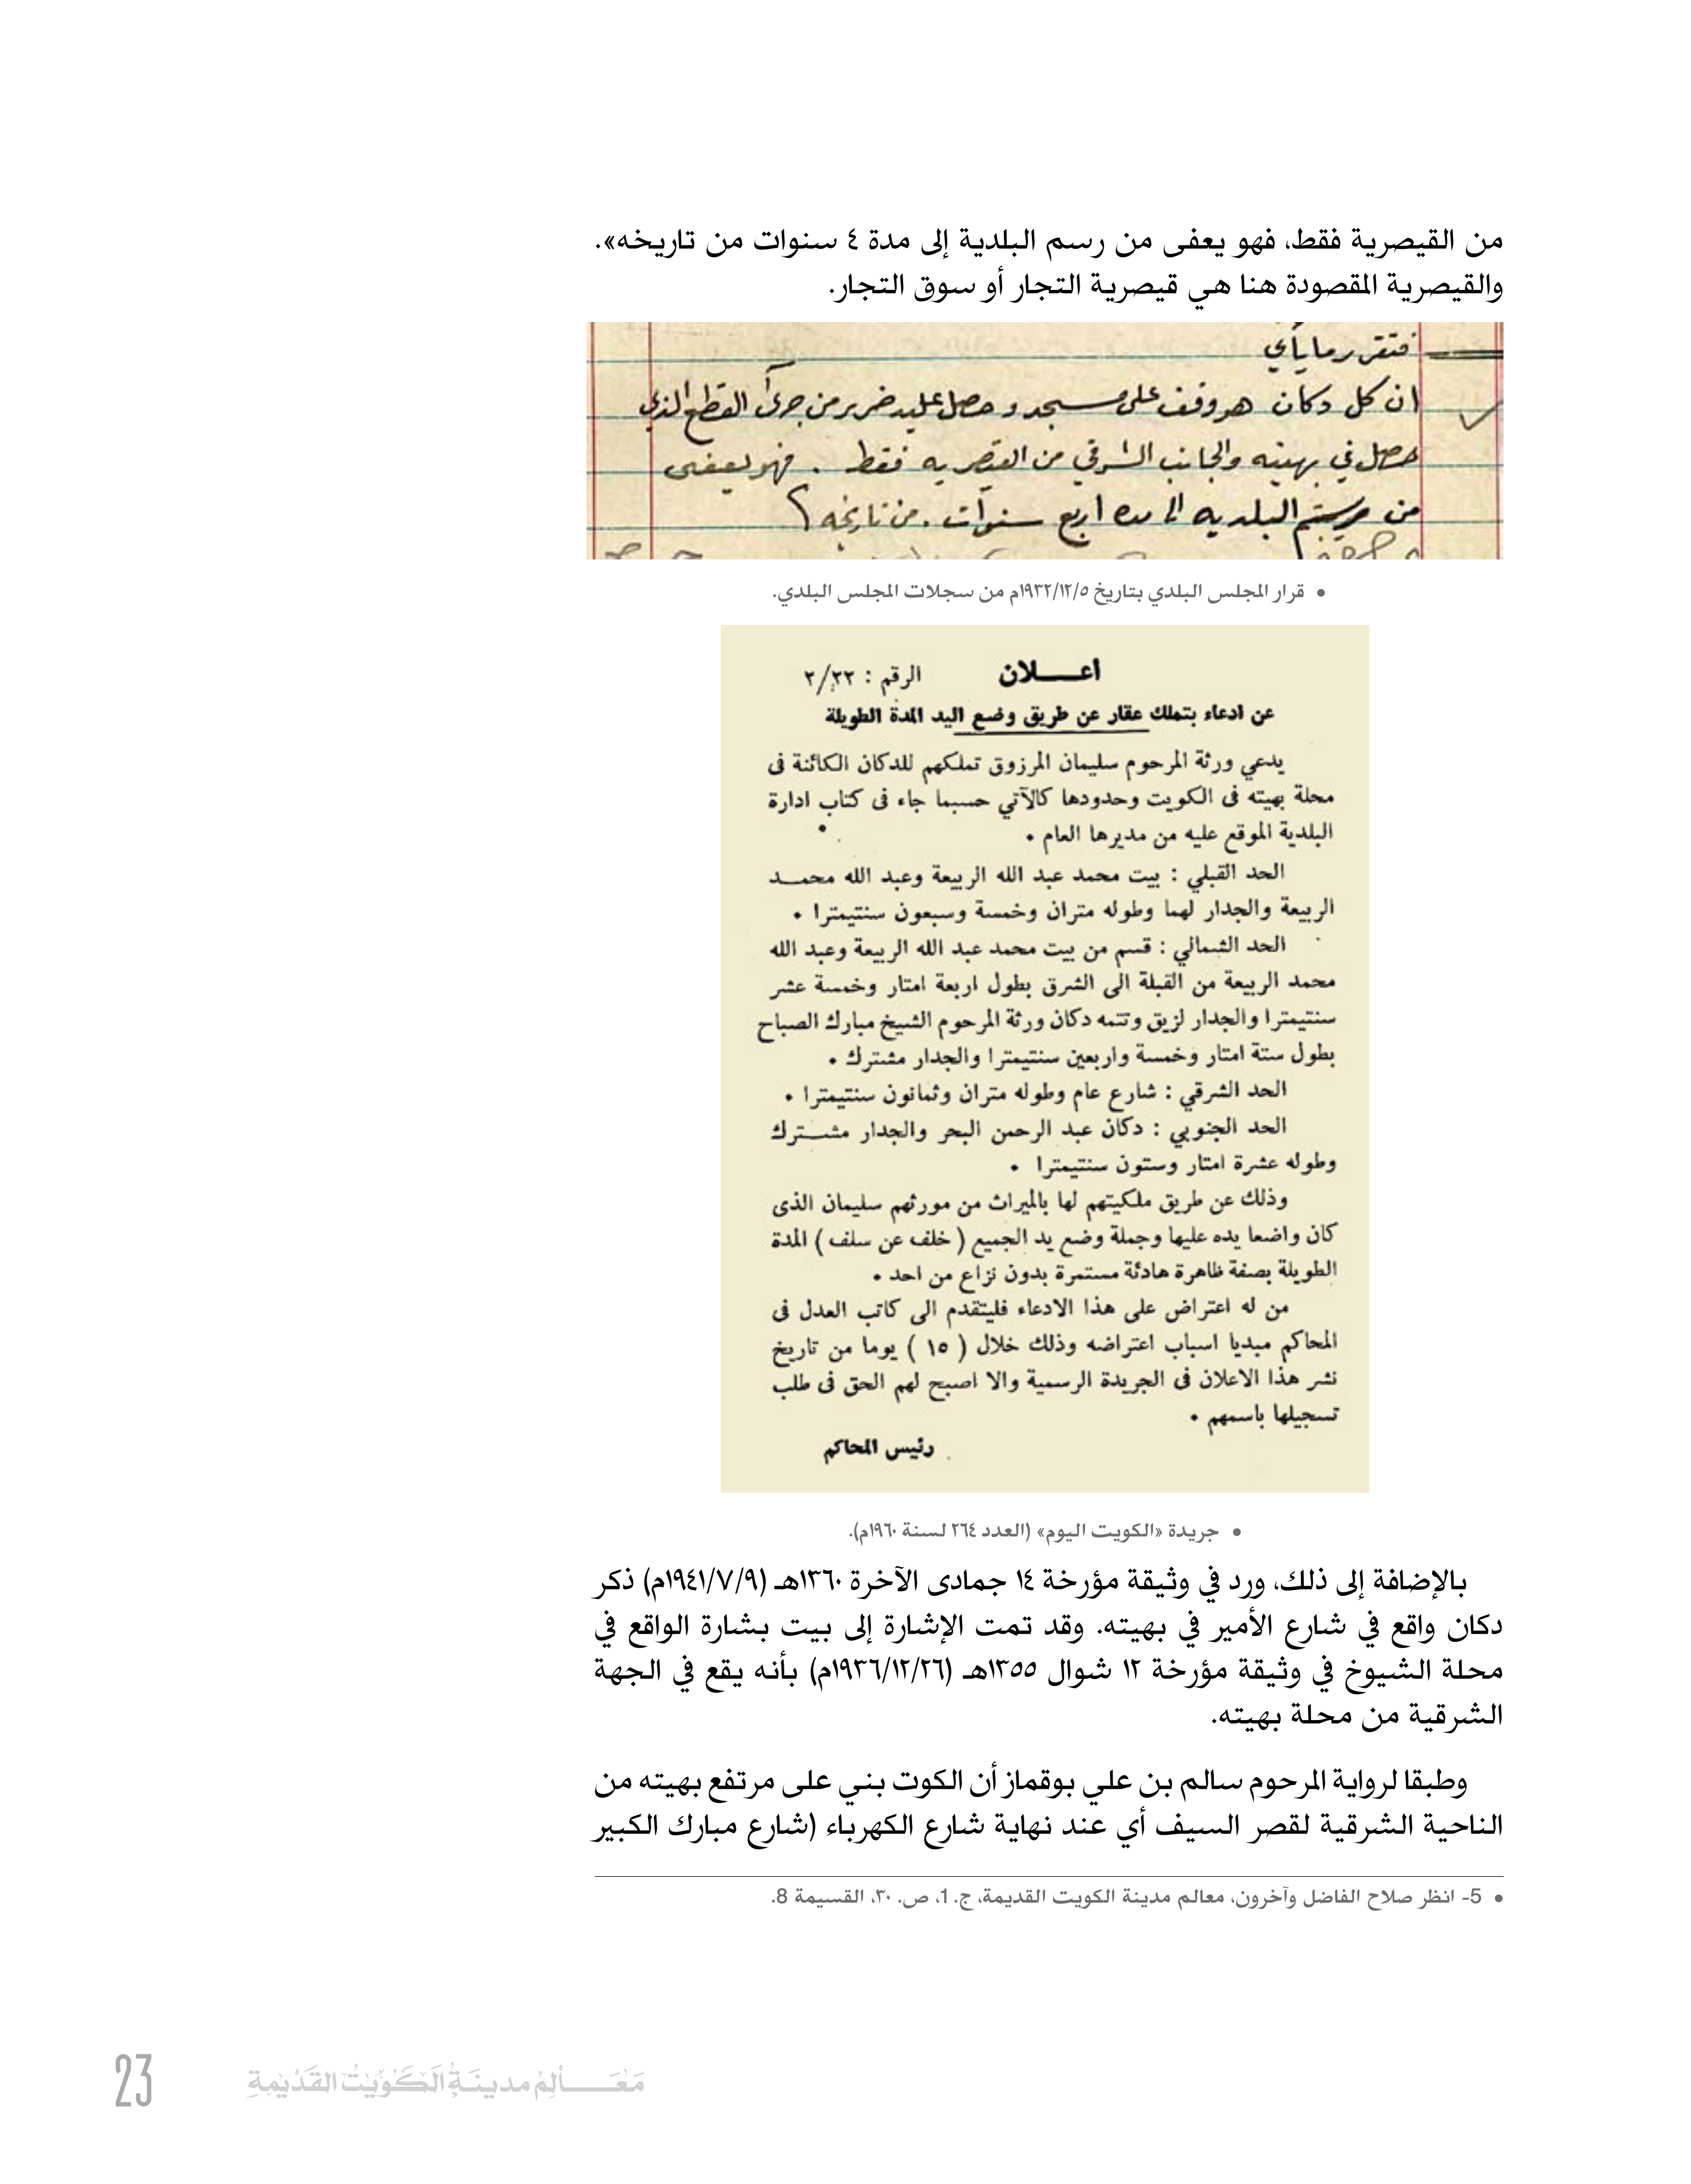 من القيصرية فقط، فهو يعفى من رسم البلدية إلى مدة ٤ سنوات من تاريخه».
والقيصرية المقصودة هنا هي قيصرية التجار أو سوق التجار.
فتقرر ما يأتي
ان كل دكان هو وقف على مسجد وحصل عليه ضرر من جرى القطع الذي
حصل في بهيته والجانب الشرقي من القيصريه فقط . فهو يعفى
من رسم البلديه الى مده اربع سنوات . من تاريخه
• قرار المجلس البلدي بتاريخ ١٩٣٢/١٢/٥م من سجلات المجلس البلدي.
اعـــلان
الرقم : ٢/٢٢
عن ادعاء بتملك عقار عن طريق وضع اليد المدة الطويلة
يدعي ورثة المرحوم سليمان المرزوق تملكهم للدكان الكائنة فى
محلة بهيته فى الكويت وحدودها كالآتي حسبما جاء فى كتاب ادارة
البلدية الموقع عليه من مديرها العام •
الحد القبلي : بيت محمد عبد الله الربيعة وعبد الله محمـــد
الربيعة والجدار لهما وطوله متران وخمسة وسبعون سنتيمترا •
الحد الشمالي : قسم من بيت محمد عبد الله الربيعة وعبد الله
محمد الربيعة من القبلة الى الشرق بطول اربعة امتار وخمسة عشر
سنتيمترا والجدار لزيق وتتمه دكان ورثة المرحوم الشيخ مبارك الصباح
بطول ستة امتار وخمسة واربعين سنتيمترا والجدار مشترك •
الحد الشرقي : شارع عام وطوله متران وثمانون سنتيمترا •
الحد الجنوبي : دكان عبد الرحمن البحر والجدار مشـــترك
وطوله عشرة امتار وستون سنتيمترا •
وذلك عن طريق ملكيتهم لها بالميراث من مورثهم سليمان الذى
كان واضعا يده عليها وجملة وضع يد الجميع ( خلف عن سلف ) المدة
الطويلة بصفة ظاهرة هادئة مستمرة بدون نزاع من احد •
من له اعتراض على هذا الادعاء فليتقدم الى كاتب العدل فى
المحاكم مبديا اسباب اعتراضه وذلك خلال ( ١٥ ) يوما من تاريخ
نشر هذا الاعلان فى الجريدة الرسمية والا اصبح لهم الحق فى طلب
تسجيلها باسمهم •
رئيس المحاكم
• جريدة «الكويت اليوم» (العدد ٢٦٤ لسنة ١٩٦٠م).
بالإضافة إلى ذلك، ورد في وثيقة مؤرخة ١٤ جمادى الآخرة ١٣٦٠هـ (١٩٤١/٧/٩م) ذكر
دكان واقع في شارع الأمير في بهيته. وقد تمت الإشارة إلى بيت بشارة الواقع في
محلة الشيوخ في وثيقة مؤرخة ١٢ شوال ١٣٥٥هـ (١٩٣٦/١٢/٢٦م) بأنه يقع في الجهة
الشرقية من محلة بهيته.
وطبقا لرواية المرحوم سالم بن علي بوقماز أن الكوت بني على مرتفع بهيته من
الناحية الشرقية لقصر السيف أي عند نهاية شارع الكهرباء (شارع مبارك الكبير
• 5- انظر صلاح الفاضل وآخرون، معالم مدينة الكويت القديمة، ج. 1، ص. ٣٠، القسيمة 8.
مَعَـــالِمُ مدينَةِ الكُوَيْتِ القَدْيمةِ
23